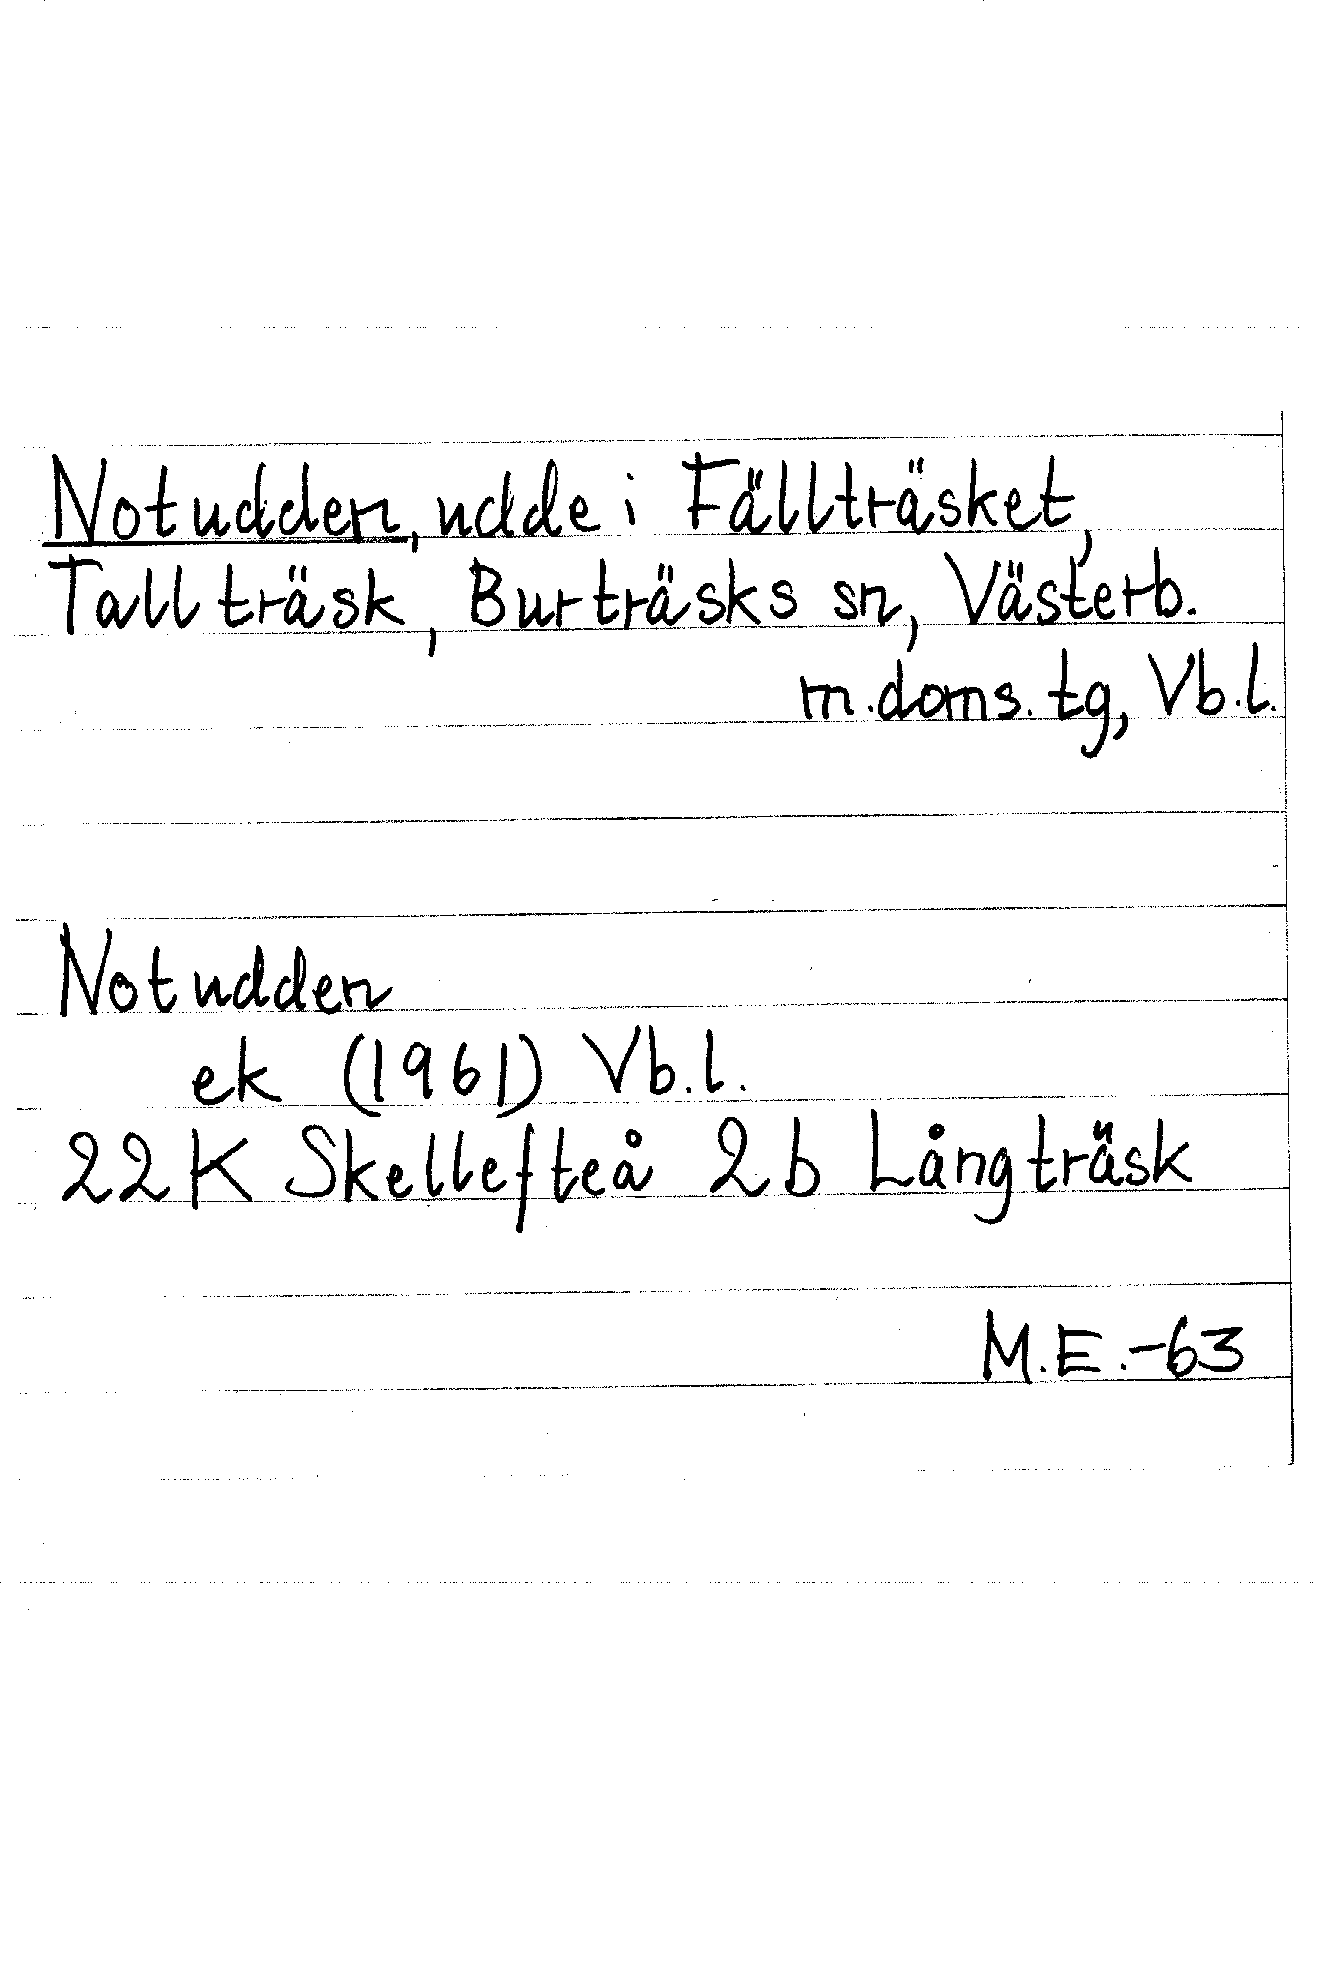 Notudden, udde i Fällträsket,
Tallträsk, Burträsks sn, Västerb.
m.doms.tg, Vb.l.
Notudden
ek (1961) Vb.l.
22K Skellefteå 2b Långträsk
M.E.-63